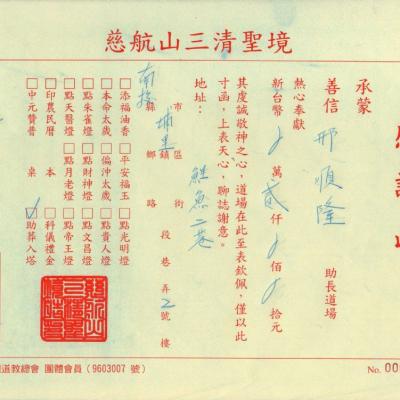 慈航山三清聖境
承蒙
善信 邢順隆 助長道場
熱心奉獻
新台幣 萬貳仟 佰 拾元
其虔誠敬神之心，道場在此至表欽佩，僅以此
寸函，上表天心，聊誌謝意。
地址：
南投縣市 埔里鄉鎮區 鯉魚二巷 路街 段巷弄 2 號 樓
□添福油香 □平安福玉 □點光明燈
□本命太歲 □偏沖太歲 □點貴人燈
□點朱雀燈 □點財神燈 □點文昌燈
□點天醫燈 □點月老燈 □點帝王燈
□印農民曆 本 □科儀禮金
□中元贊普 桌 ☑助葬入塔
道教總會 團體會員（9603007 號）
No. 00